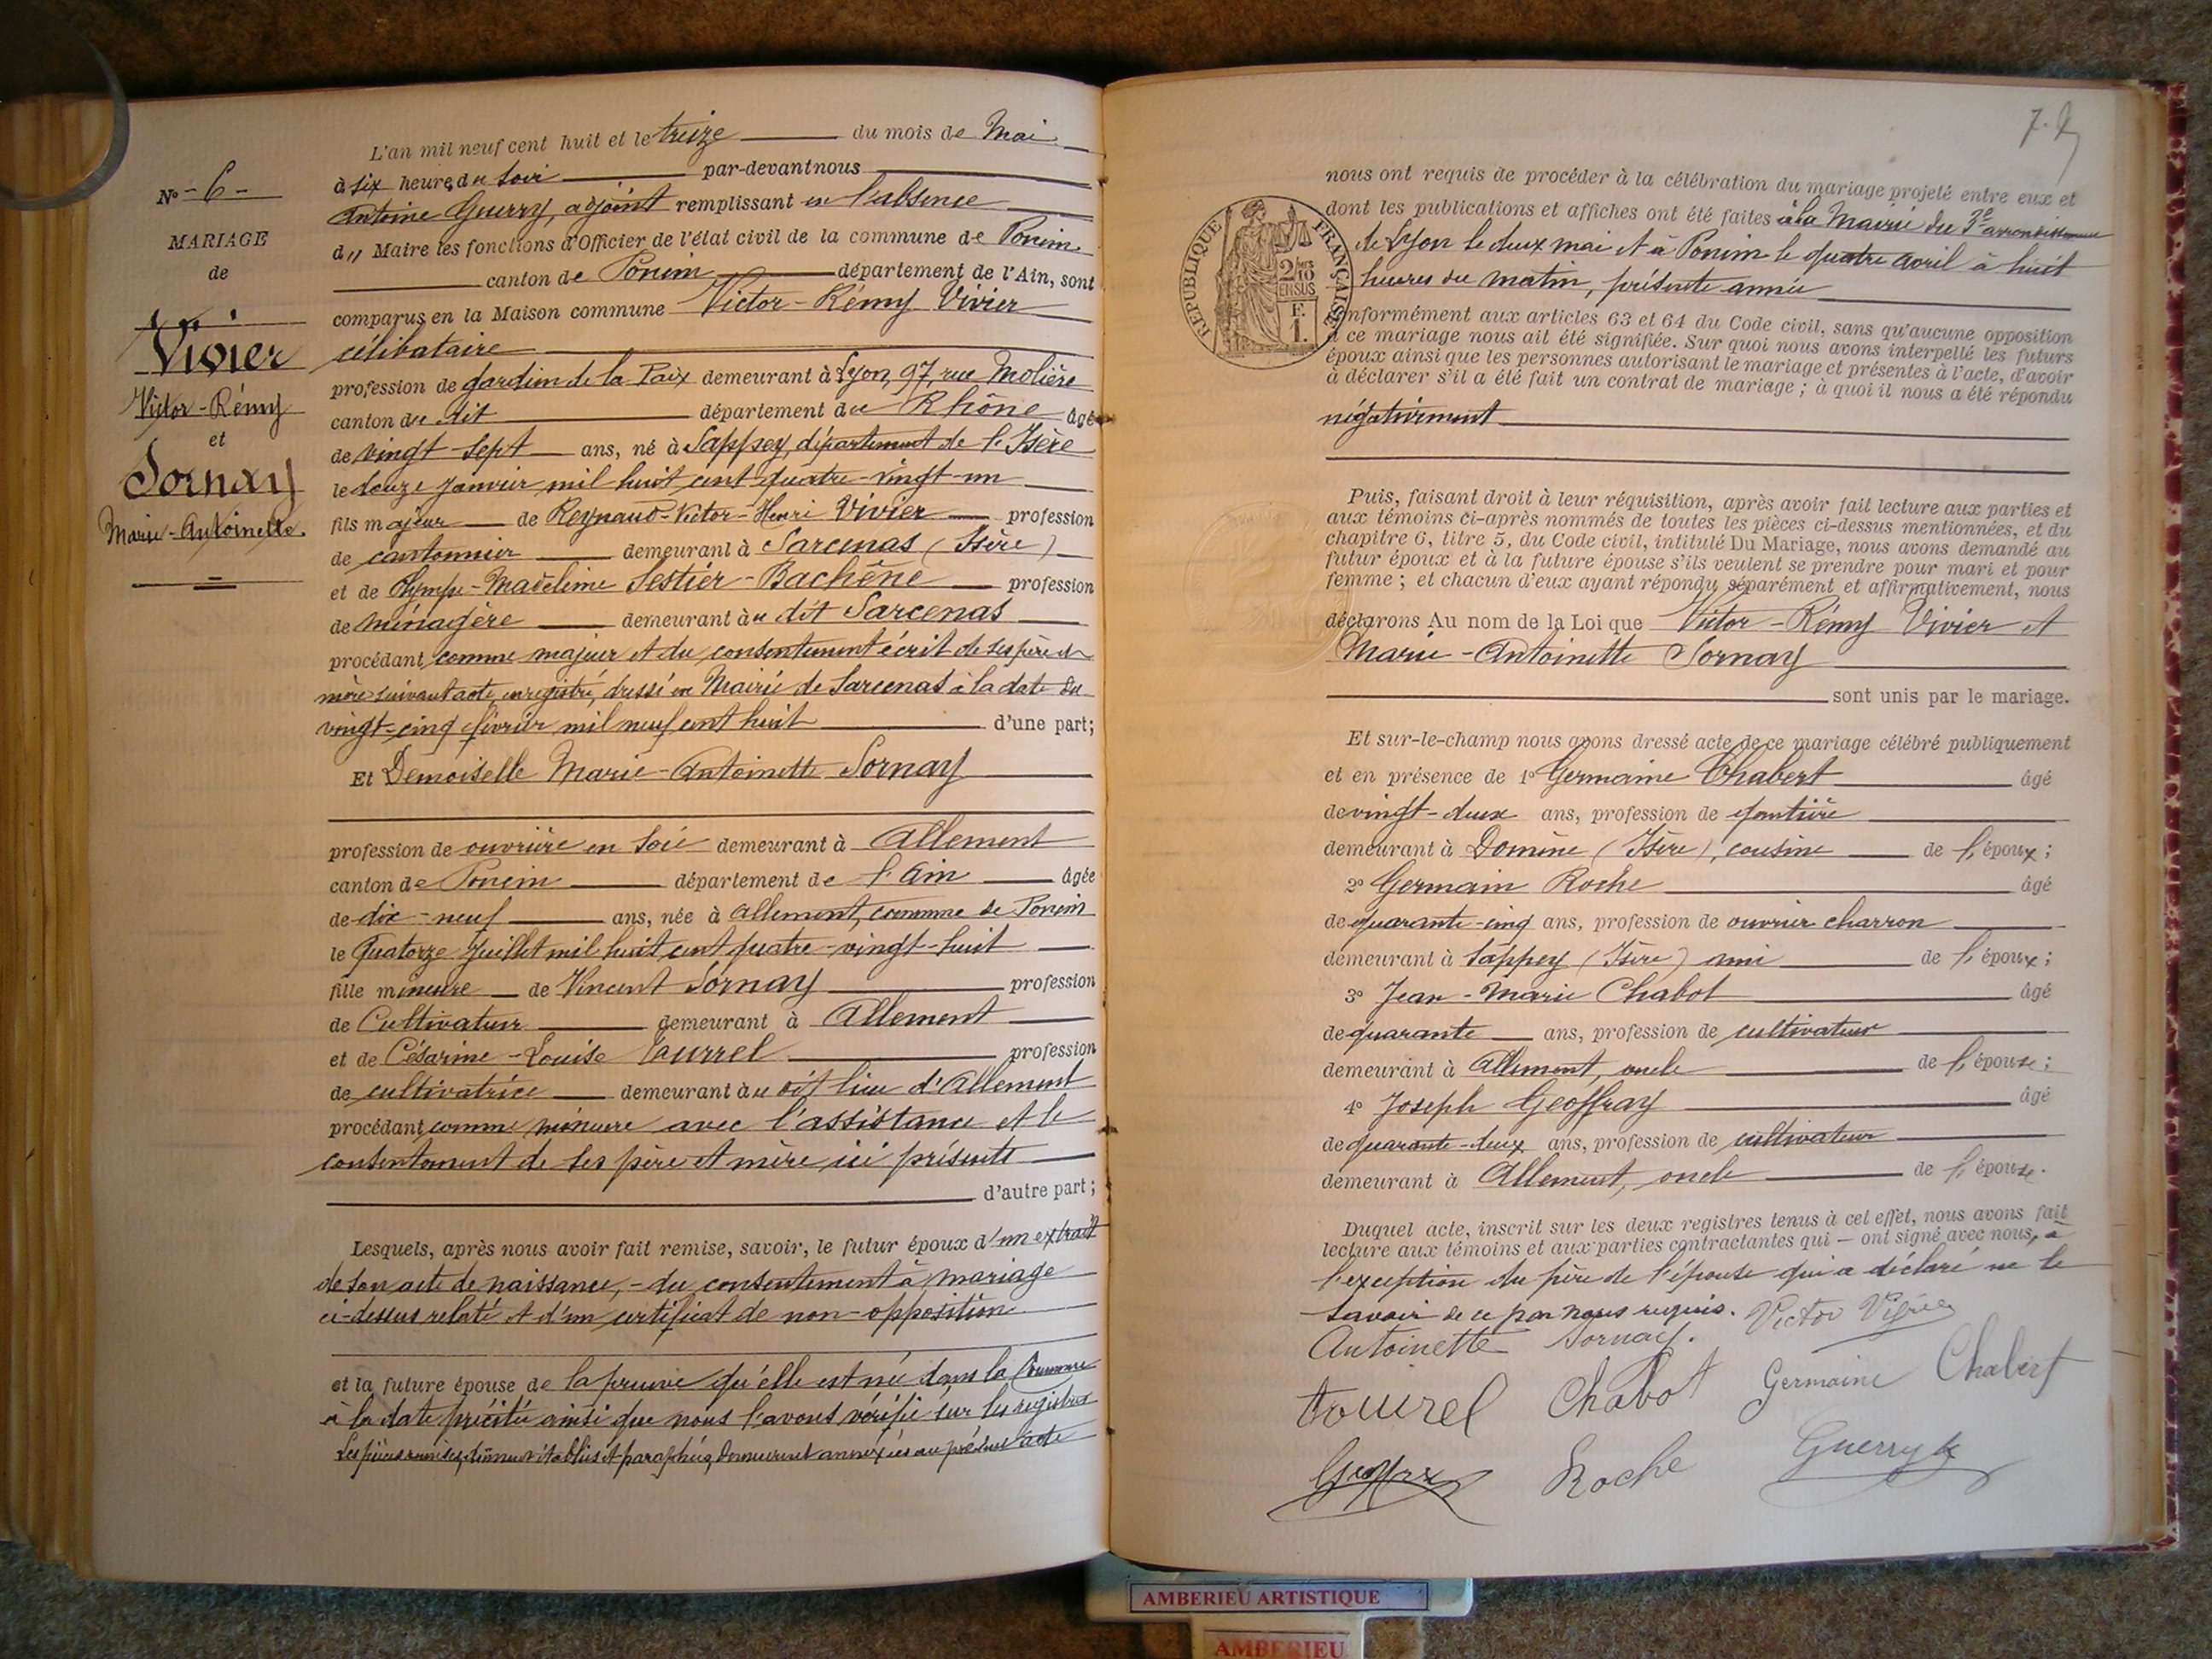 N° - 6 -
MARIAGE
de
Vivier
Victor-Rémy
et
Sornay
Marie-Antoinette.
L'an mil neuf cent huit et le treize du mois de Mai
à six heures du soir par-devant nous
Antoine Guerry, adjoint remplissant en l'absence
du Maire les fonctions d'Officier de l'état civil de la commune de Poncin
canton de Poncin département de l'Ain, sont
comparus en la Maison commune Victor-Rémy Vivier
célibataire
profession de gardien de la Paix demeurant à Lyon, 97, rue Molière
canton du dit département du Rhône âgé
de vingt-sept ans, né à Sappey, département de l'Isère
le douze janvier mil huit cent quatre-vingt-un
fils majeur de Reynaud-Victor-Henri Vivier profession
de cantonnier demeurant à Sarcenas (Isère)
et de Olympe-Madeleine Sestier-Bachêne profession
de ménagère demeurant au dit Sarcenas
procédant comme majeur et du consentement écrit de ses père et
mère suivant acte enregistré, dressé en Mairie de Sarcenas à la date du
vingt-cinq février mil neuf cent huit d'une part;
Et Demoiselle Marie-Antoinette Sornay
profession de ouvrière en soie demeurant à Allement
canton de Poncin département de l'Ain âgée
de dix-neuf ans, née à Allement, commune de Poncin
le Quatorze Juillet mil huit cent quatre-vingt-huit
fille mineure de Vincent Sornay profession
de Cultivateur demeurant à Allement
et de Césarine-Louise Tourrel profession
de cultivatrice demeurant au dit lieu d'Allement
procédant comme mineure avec l'assistance et le
consentement de ses père et mère ici présents
d'autre part;
Lesquels, après nous avoir fait remise, savoir, le futur époux d'un extrait
de son acte de naissance, - du consentement à mariage
ci-dessus relaté et d'un certificat de non-opposition
et la future épouse de la preuve qu'elle est née dans la Commune
à la date précitée ainsi que nous l'avons vérifié sur les registres
Les pièces remises, dûment établies et paraphées, demeureront annexées au présent acte
7.
nous ont requis de procéder à la célébration du mariage projeté entre eux et
dont les publications et affiches ont été faites à la Mairie du 3e arrondissement
de Lyon le deux mai et à Poncin le quatre avril à huit
heures du matin, présente année
RÉPUBLIQUE FRANÇAISE
2/10 EN SUS
F.
1.
conformément aux articles 63 et 64 du Code civil, sans qu'aucune opposition
à ce mariage nous ait été signifiée. Sur quoi nous avons interpellé les futurs
époux ainsi que les personnes autorisant le mariage et présentes à l'acte, d'avoir
à déclarer s'il a été fait un contrat de mariage ; à quoi il nous a été répondu
négativement
Puis, faisant droit à leur réquisition, après avoir fait lecture aux parties et
aux témoins ci-après nommés de toutes les pièces ci-dessus mentionnées, et du
chapitre 6, titre 5, du Code civil, intitulé Du Mariage, nous avons demandé au
futur époux et à la future épouse s'ils veulent se prendre pour mari et pour
femme ; et chacun d'eux ayant répondu séparément et affirmativement, nous
déclarons Au nom de la Loi que Victor-Rémy Vivier et
Marie-Antoinette Sornay
sont unis par le mariage.
Et sur-le-champ nous avons dressé acte de ce mariage célébré publiquement
et en présence de 1° Germaine Chabert âgé
de vingt-deux ans, profession de gantière
demeurant à Domène (Isère), cousine de l'époux ;
2° Germain Roche âgé
de quarante-cinq ans, profession de ouvrier charron
demeurant à Sappey (Isère) ami de l'époux ;
3° Jean-Marie Chabot âgé
de quarante ans, profession de cultivateur
demeurant à Allement, oncle de l'épouse ;
4° Joseph Geoffray âgé
de quarante-deux ans, profession de cultivateur
demeurant à Allement, oncle de l'épouse.
Duquel acte, inscrit sur les deux registres tenus à cet effet, nous avons fait
lecture aux témoins et aux parties contractantes qui - ont signé avec nous, à
l'exception du père de l'épouse qui a déclaré ne le
savoir de ce par nous requis. Victor Vivier
Antoinette Sornay.
tourel Chabot Germaine Chabert
Roche Guerry
AMBERIEU ARTISTIQUE
AMBERIEU